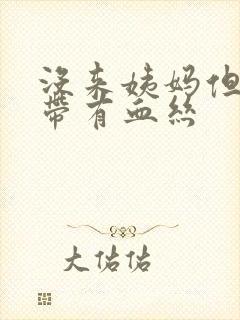 没来姨妈但
带有血丝
大佑佑